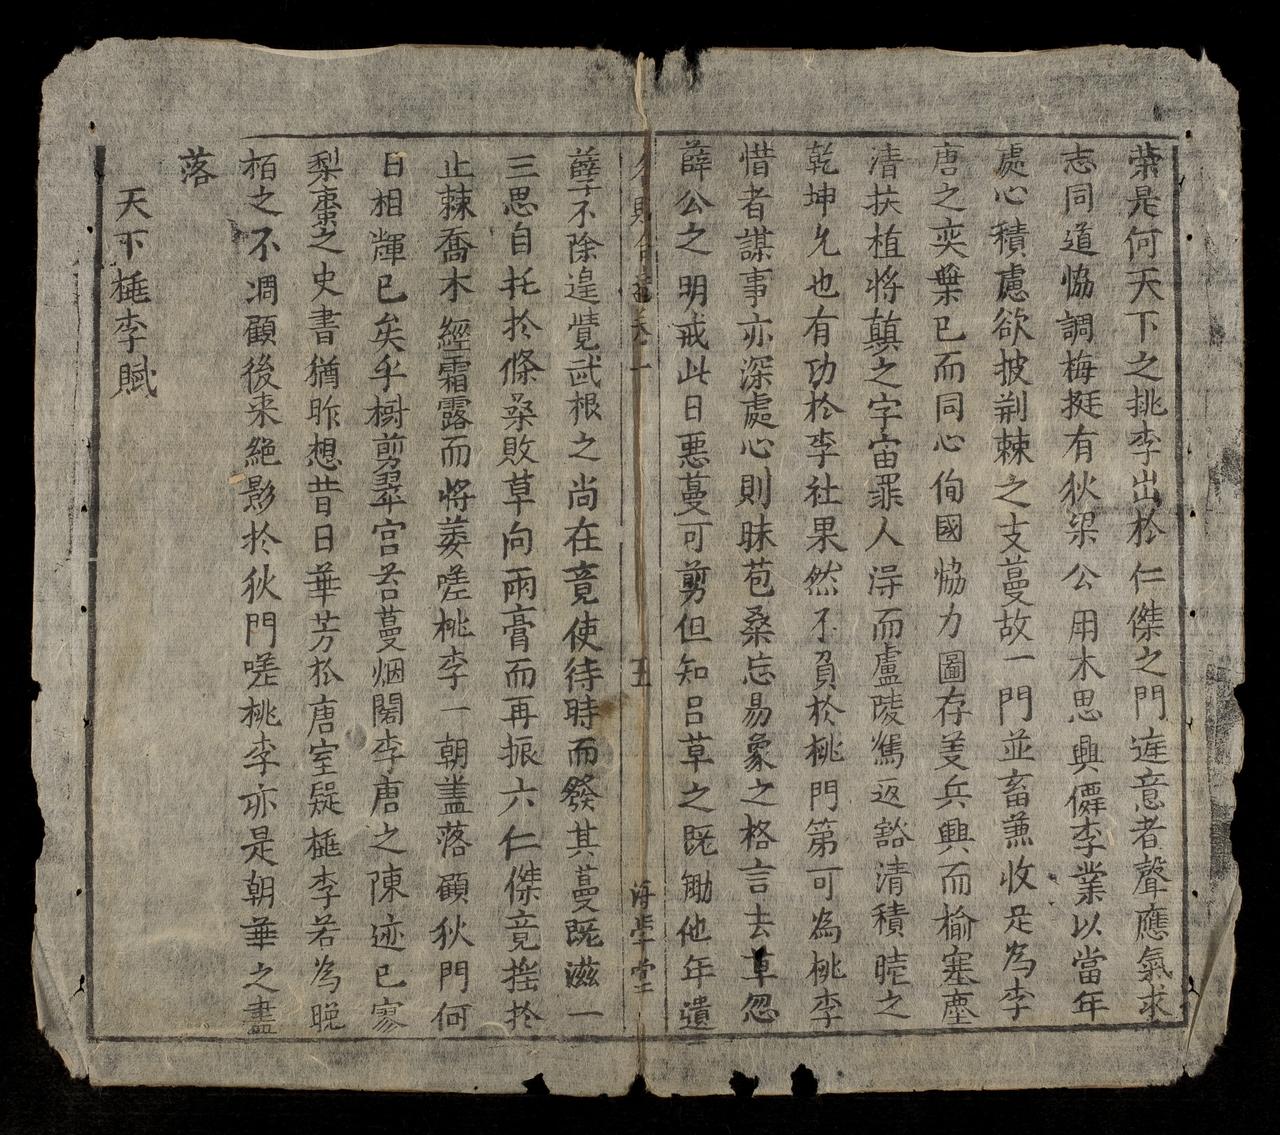 荣是何天下之桃李出於仁傑之門庭意者聲應氣求
志同道恊調梅挺有狄梁公用木思興僻李業以當年
處心積慮欲披荆棘之支蔓故一門並畜兼收足為李
唐之奕葉已而同心徇國恊力圖存姜兵興而榆塞塵
清扶植將蘏之字宙罪人淂而盧陵駕返谿清積曀之
乾坤允也有功於李社果然不負於桃門第可為桃李
惜者謀事亦深處心則昧苞桑忘易象之格言去草忽
薛公之明戒此日悪蔓可剪但知吕草之既鋤他年遺
卷一
五
海學堂
孽不除遑覺武根之尚在竟使待時而發其蔓既滋一
三思自托於條桑敗草向雨膏而再振六仁傑竟摧於
止棘喬木經霜露而將萎嗟桃李一朝盖落顧狄門何
日相輝已矣乎樹剪翠宫苔蔓烟閣李唐之陳迹已寥
梨棗之史書猶昨想昔日華芳於唐室疑桃李若為晚
栢之不凋顧後来絶影於狄門嗟桃李亦是朝華之盡
落
天下桃李賦